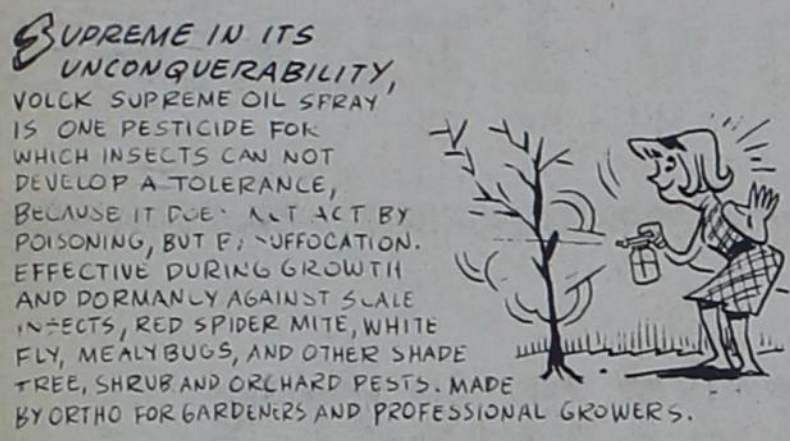 SUPREME IN ITS
UNCONQUERABILITY,
VOLCK SUPREME OIL SPRAY
IS ONE PESTICIDE FOR
WHICH INSECTS CAN NOT
DEVELOP A TOLERANCE,
BECAUSE IT DOES NOT ACT BY
POISONING, BUT BY SUFFOCATION.
EFFECTIVE DURING GROWTH
AND DORMANCY AGAINST SCALE
INSECTS, RED SPIDER MITE, WHITE
FLY, MEALYBUGS, AND OTHER SHADE
TREE, SHRUB AND ORCHARD PESTS. MADE
BY ORTHO FOR GARDENERS AND PROFESSIONAL GROWERS.